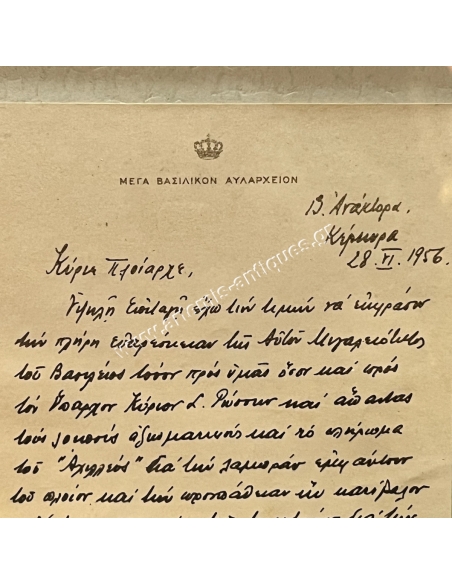 ΜΕΓΑ ΒΑΣΙΛΙΚΟΝ ΑΥΛΑΡΧΕΙΟΝ
Β. Ἀνάκτορα.
Κέρκυρα
28.VI.1956.
Κύριε Πλοίαρχε,
Ὑψηλῇ Ἐπιταγῇ ἔχω τὴν τιμὴν νὰ ἐκφράσω
τὴν πλήρη εὐαρέσκειαν τῆς Αὐτοῦ Μεγαλειότητος
τοῦ Βασιλέως τόσον πρὸς ὑμᾶς ὅσον καὶ πρὸς
τὸν Ὕπαρχον Κύριον Σ. καὶ ἅπαντας
τοὺς λοιποὺς ἀξιωματικοὺς καὶ τὸ πλήρωμα
τοῦ "Ἀχιλλέως" διὰ τὴν λαμπρὰν ἐμφάνισιν
τοῦ πλοίου καὶ τὴν προσπάθειαν ἣν κατέβαλον
www.antiques.gr